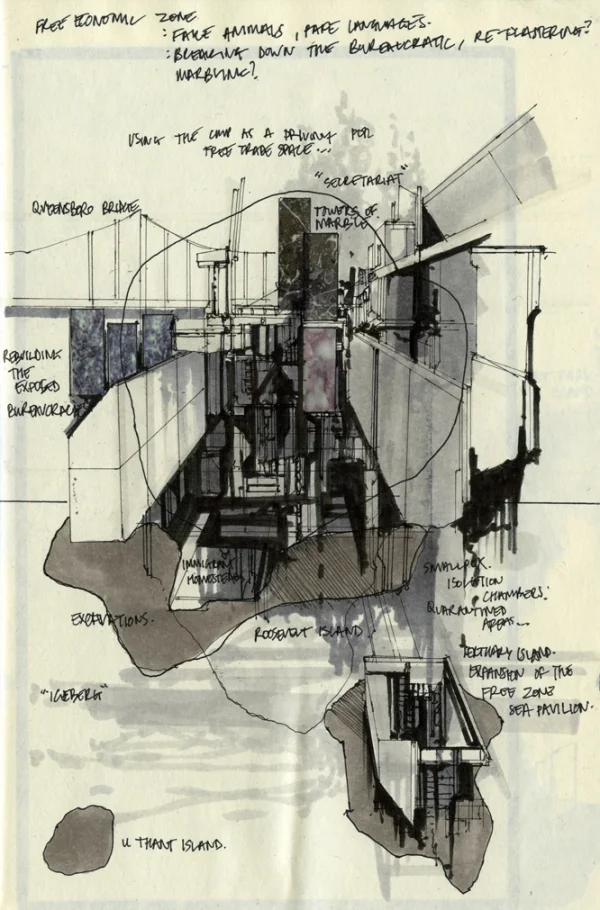 FREE ECONOMIC ZONE
: FAKE ANIMALS, FAKE LANGUAGES.
: BREAKING DOWN THE BUREAUCRATIC, RE-PLASTERING?
MARBLING?
USING THE AS A FOR
FREE TRADE SPACE...
"SECRETARIAT"
QUEENSBORO BRIDGE
TOWERS OF
MARBLE
REBUILDING
THE
EXPOSED
BUREAUCRACIES
IMMIGRANT
HOMESTEADS
SMALLPOX.
ISOLATION
CHAMBERS.
QUARANTINED
AREAS...
EXCAVATIONS.
ROOSEVELT ISLAND.
TERTIARY ISLAND.
EXPANSION OF THE
FREE ZONE
SEA PAVILION.
"ICEBERG"
U THANT ISLAND.